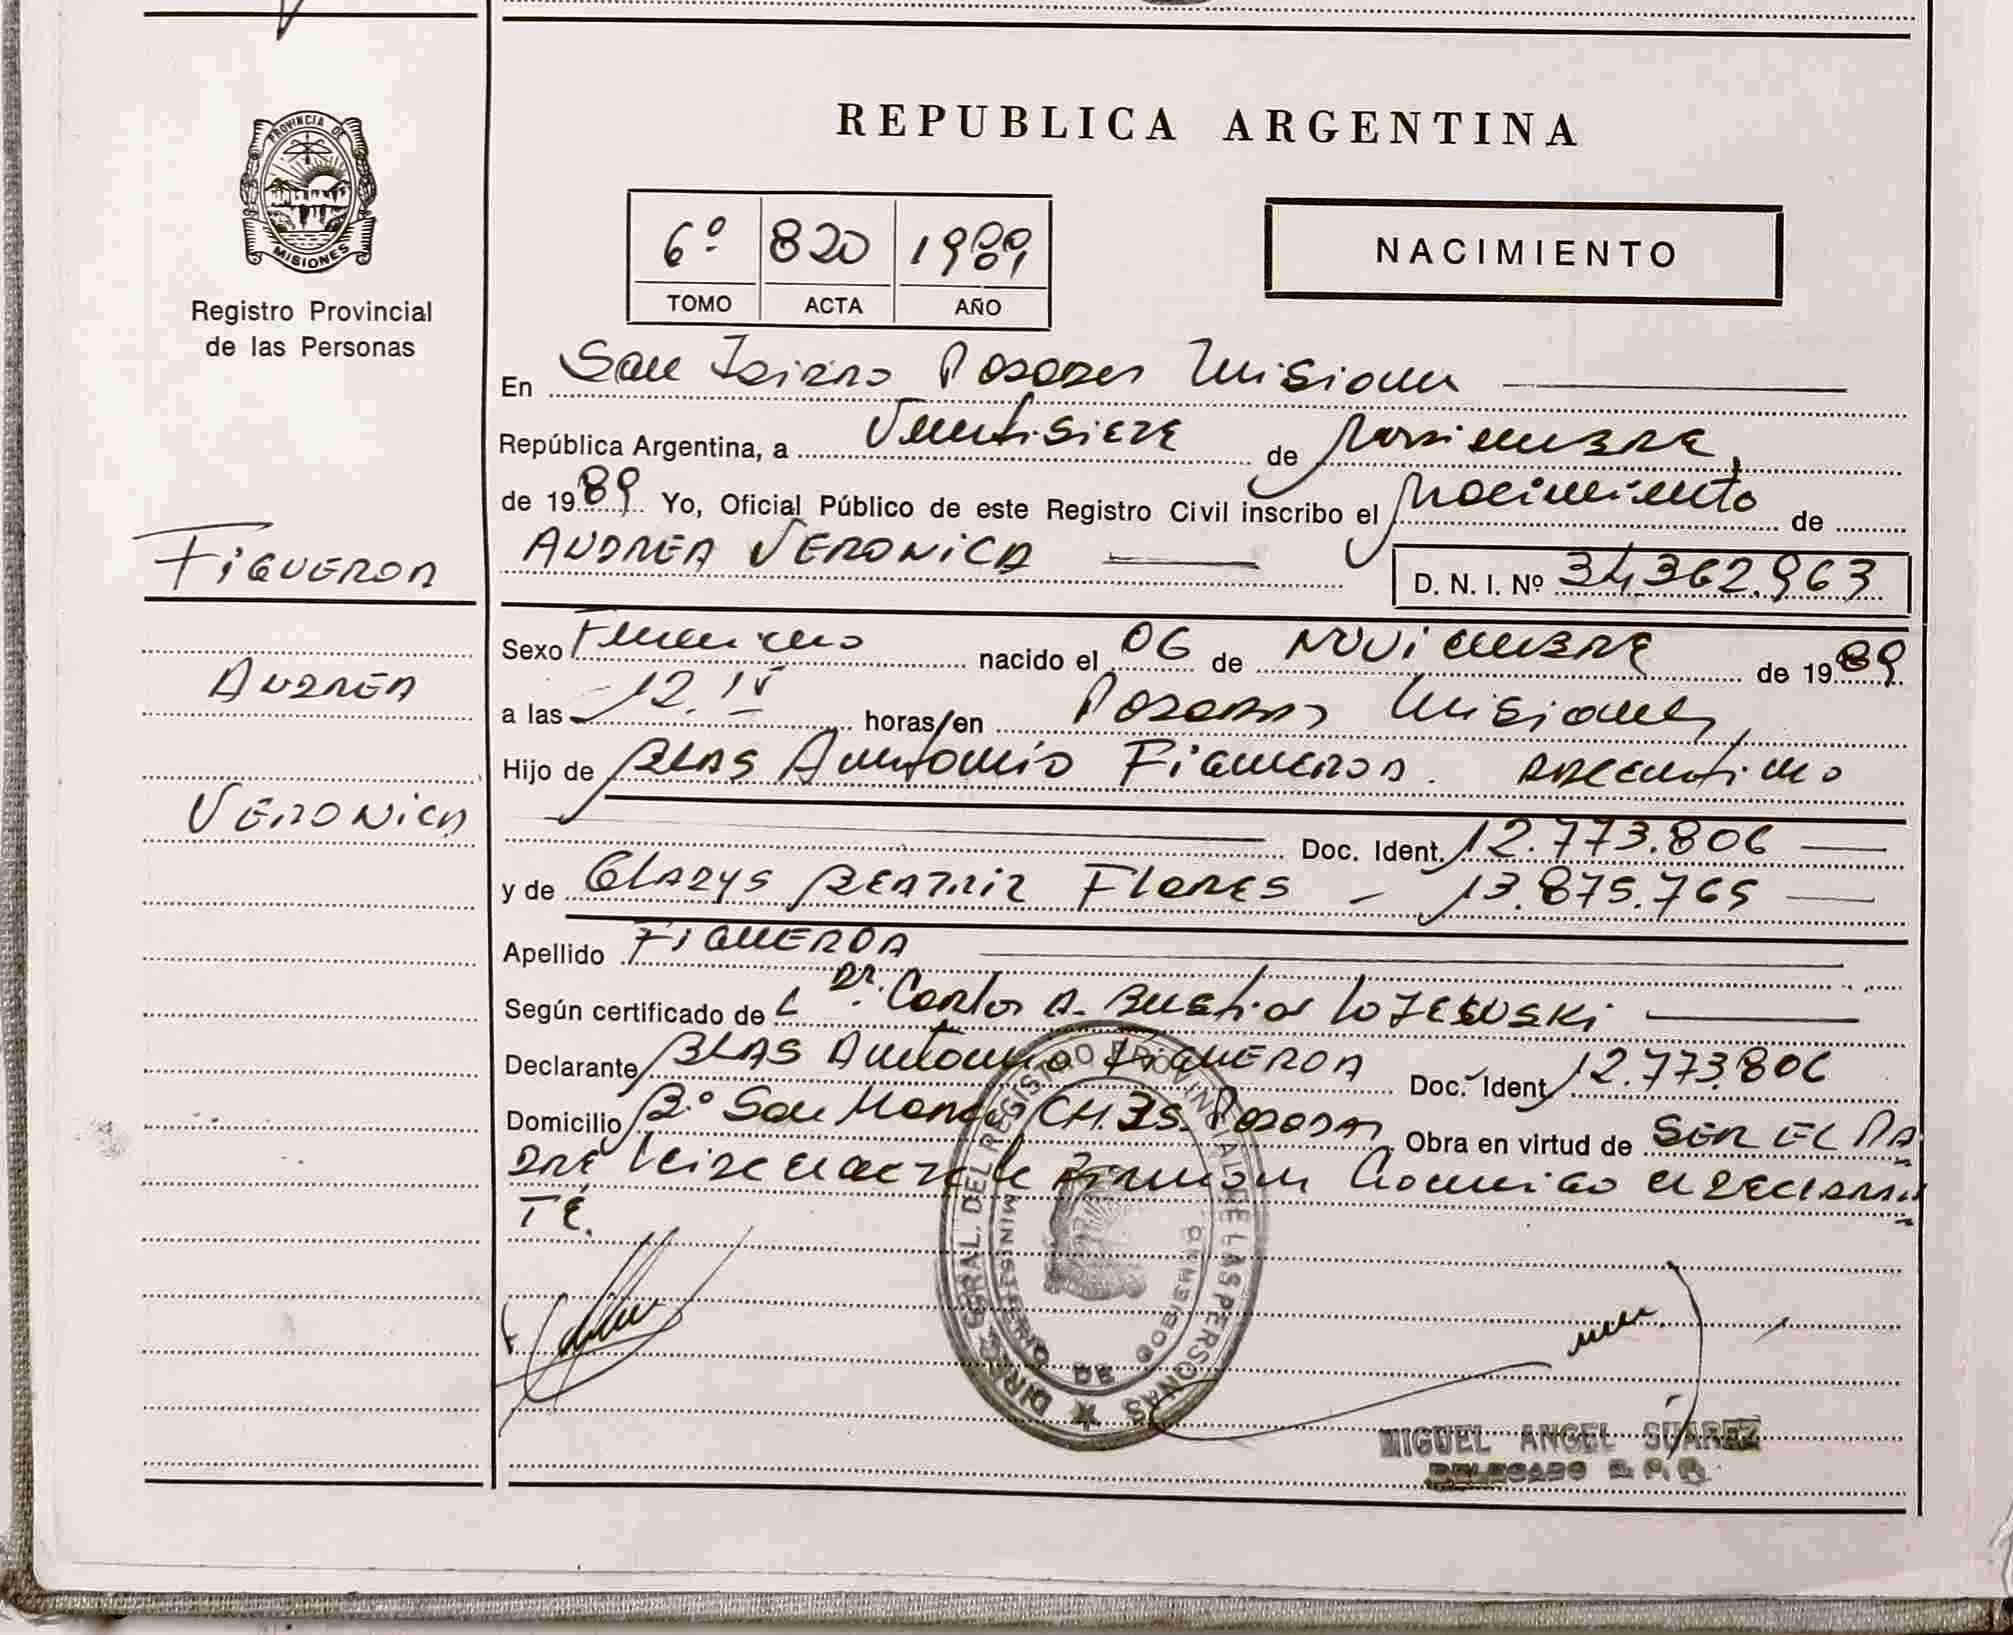 PROVINCIA DE
MISIONES
Registro Provincial
de las Personas
FIGUEROA
ANDREA
VERONICA
REPUBLICA ARGENTINA
6º 820 1989
TOMO ACTA AÑO
NACIMIENTO
En San Isidro Posadas Misiones
República Argentina, a Ventisiete de Noviembre
de 1989 Yo, Oficial Público de este Registro Civil inscribo el Nacimiento de
ANDREA VERONICA
D. N. I. Nº 34.362.963
Sexo Femenino nacido el 06 de NOViembre de 1989
a las 12. horas/en Posadas Misiones
Hijo de BLAS Antonio Figueroa. Argentino
Doc. Ident. 12.773.806
y de GLADYS BEATRIZ FLORES - 13.875.765
Apellido FIGUEROA
Según certificado de L Dr. Carlos A. Bustios
Declarante BLAS Antonio FIGUEROA Doc. Ident. 12.773.806
Domicilio Bº San Marcos CH. Posadas Obra en virtud de SER EL PA
DRE Conmigo el declaran
TE.
DIREC. GRAL. DEL REGISTRO PROVINCIAL DE LAS PERSONAS
MINISTERIO DE GOBIERNO
MIGUEL ANGEL SUAREZ
DELEGADO R. P. P.